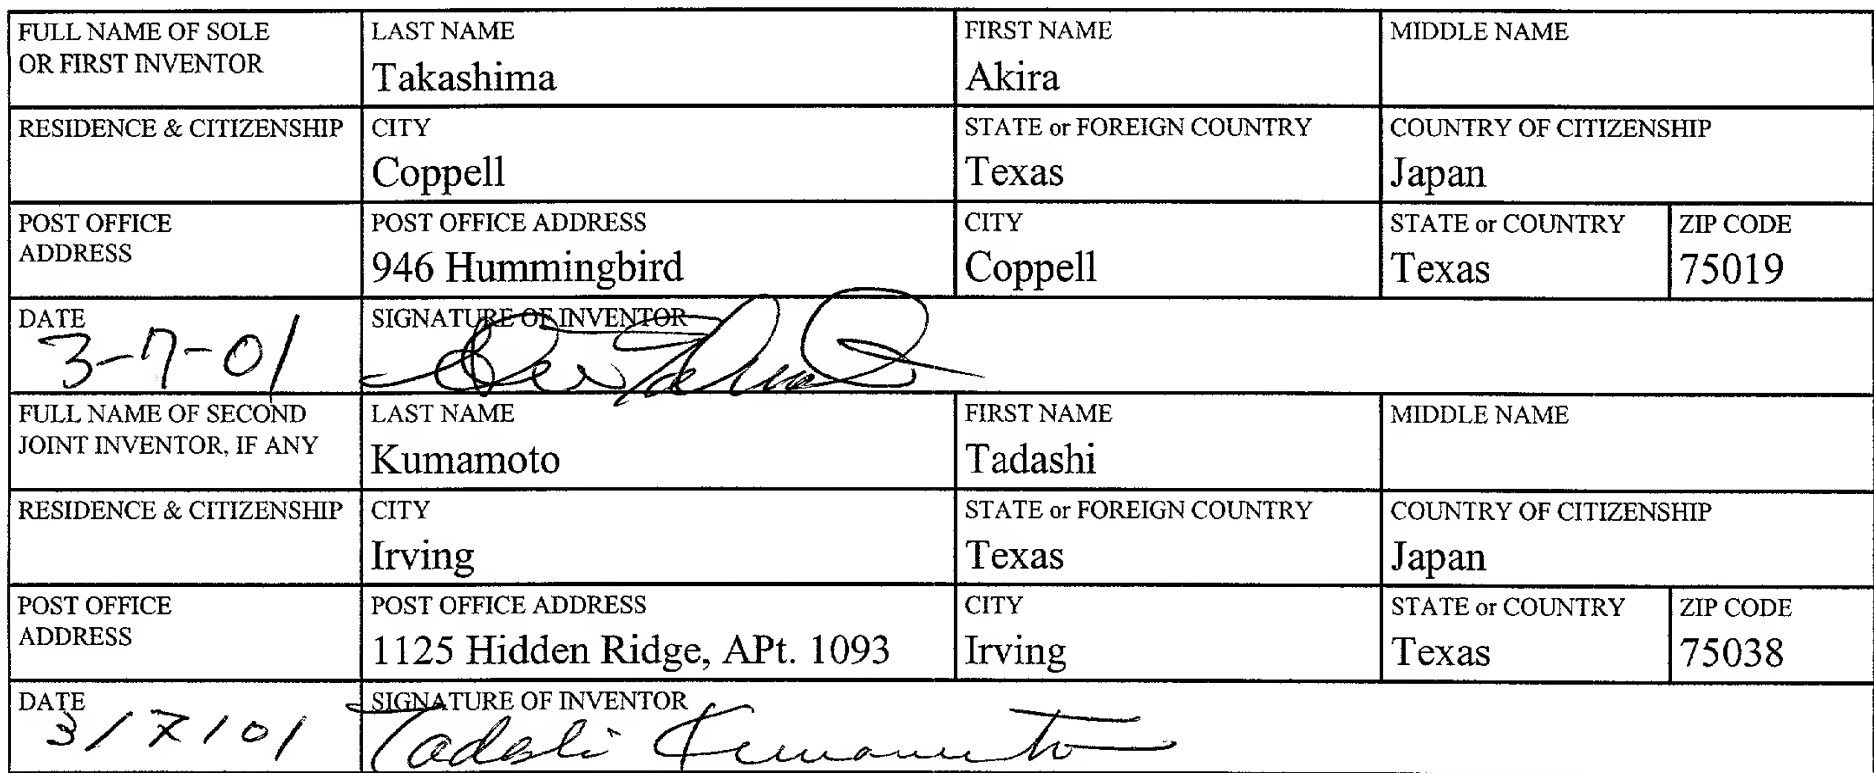 FULL NAME OF SOLE OR FIRST INVENTOR
LAST NAME
Takashima
FIRST NAME
Akira
MIDDLE NAME
RESIDENCE & CITIZENSHIP
CITY
Coppell
STATE or FOREIGN COUNTRY
Texas
COUNTRY OF CITIZENSHIP
Japan
POST OFFICE ADDRESS
POST OFFICE ADDRESS
946 Hummingbird
CITY
Coppell
STATE or COUNTRY
Texas
ZIP CODE
75019
DATE
3-7-01
SIGNATURE OF INVENTOR
FULL NAME OF SECOND JOINT INVENTOR, IF ANY
LAST NAME
Kumamoto
FIRST NAME
Tadashi
MIDDLE NAME
RESIDENCE & CITIZENSHIP
CITY
Irving
STATE or FOREIGN COUNTRY
Texas
COUNTRY OF CITIZENSHIP
Japan
POST OFFICE ADDRESS
POST OFFICE ADDRESS
1125 Hidden Ridge, APt. 1093
CITY
Irving
STATE or COUNTRY
Texas
ZIP CODE
75038
DATE
3/7/01
SIGNATURE OF INVENTOR
Tadashi Kumamoto